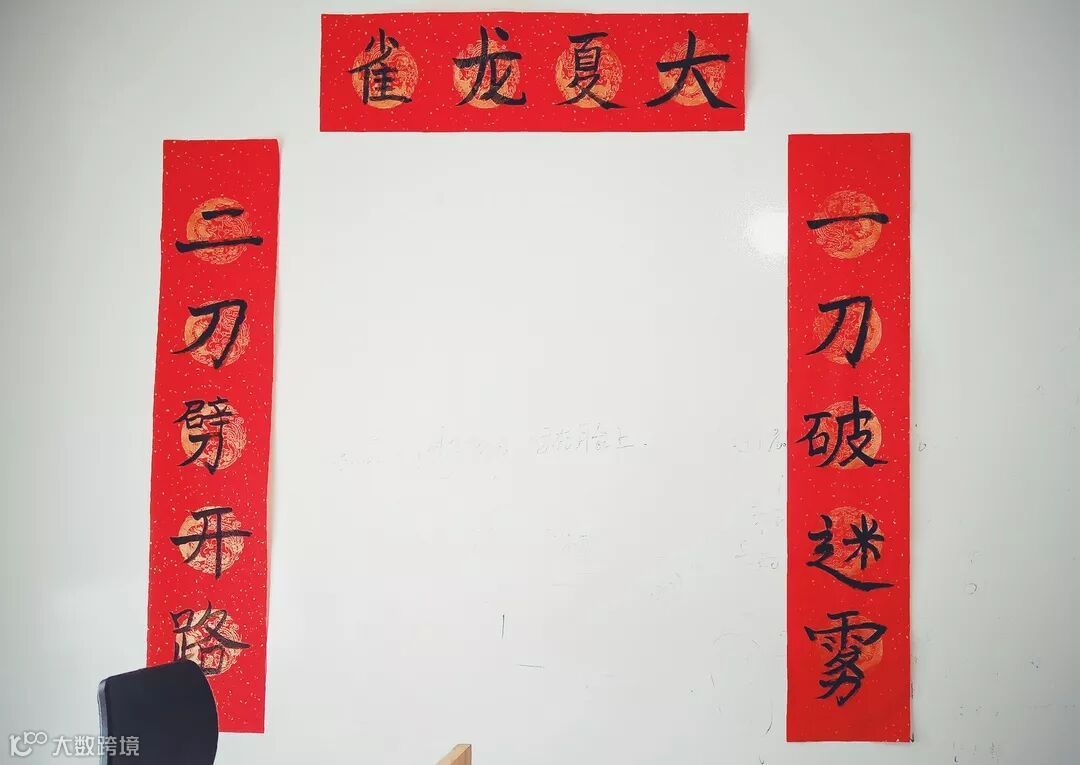 大夏龙雀
一刀破迷雾
二刀劈开路
大数跨境